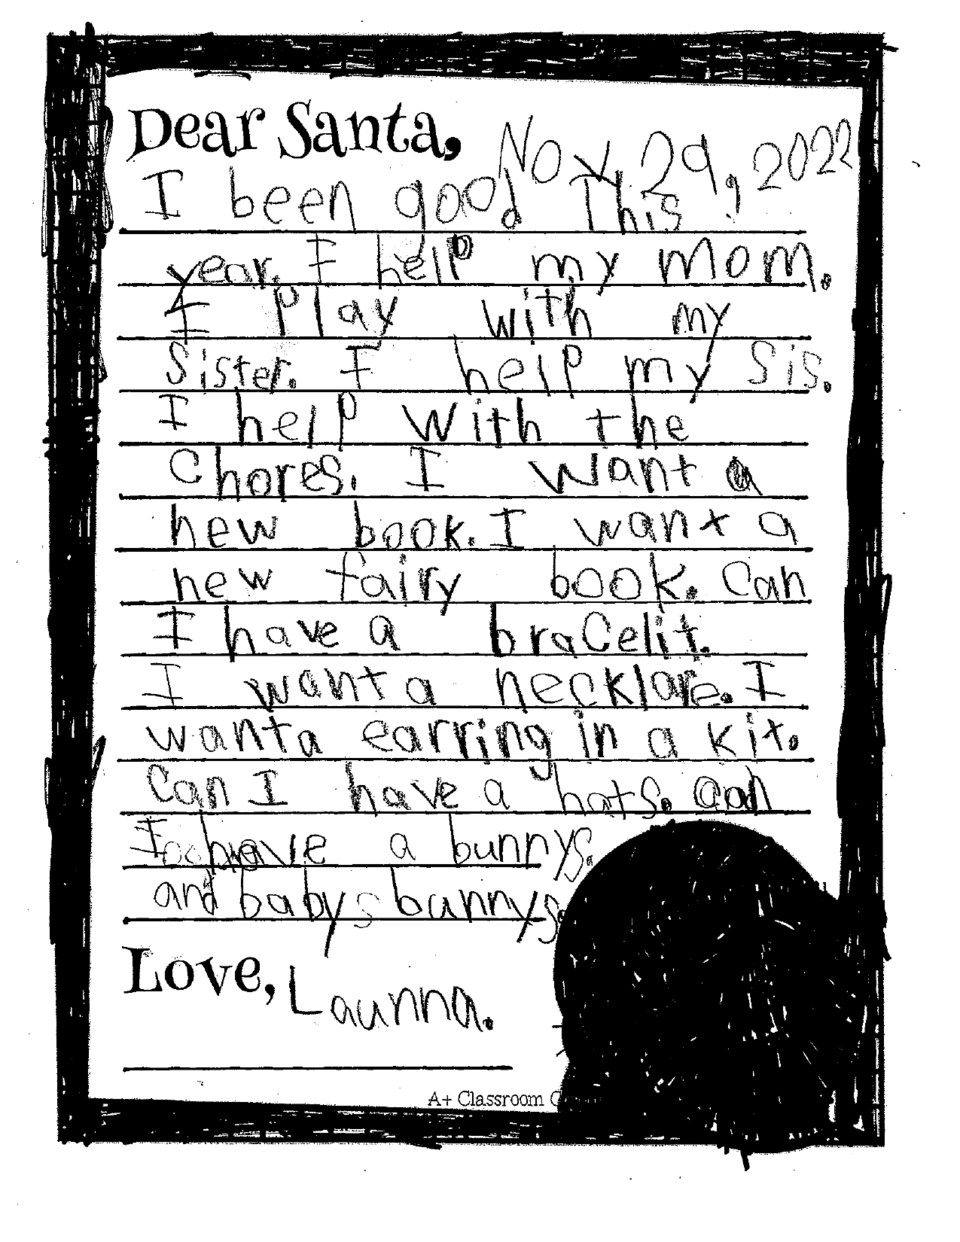 Dear Santa, Nov. 29, 2022
I been good This
year. I help my mom.
I Play with my
Sister. I help my Sis.
I help With the
Chores. I Want a
new book. I want a
new fairy book. Can
I have a braCelit.
I want a necklare. I
wanta earring in a kit.
Can I have a hats. can
I have a bunnys.
and babys bunnys.
Love, Launna.
A+ Classroom